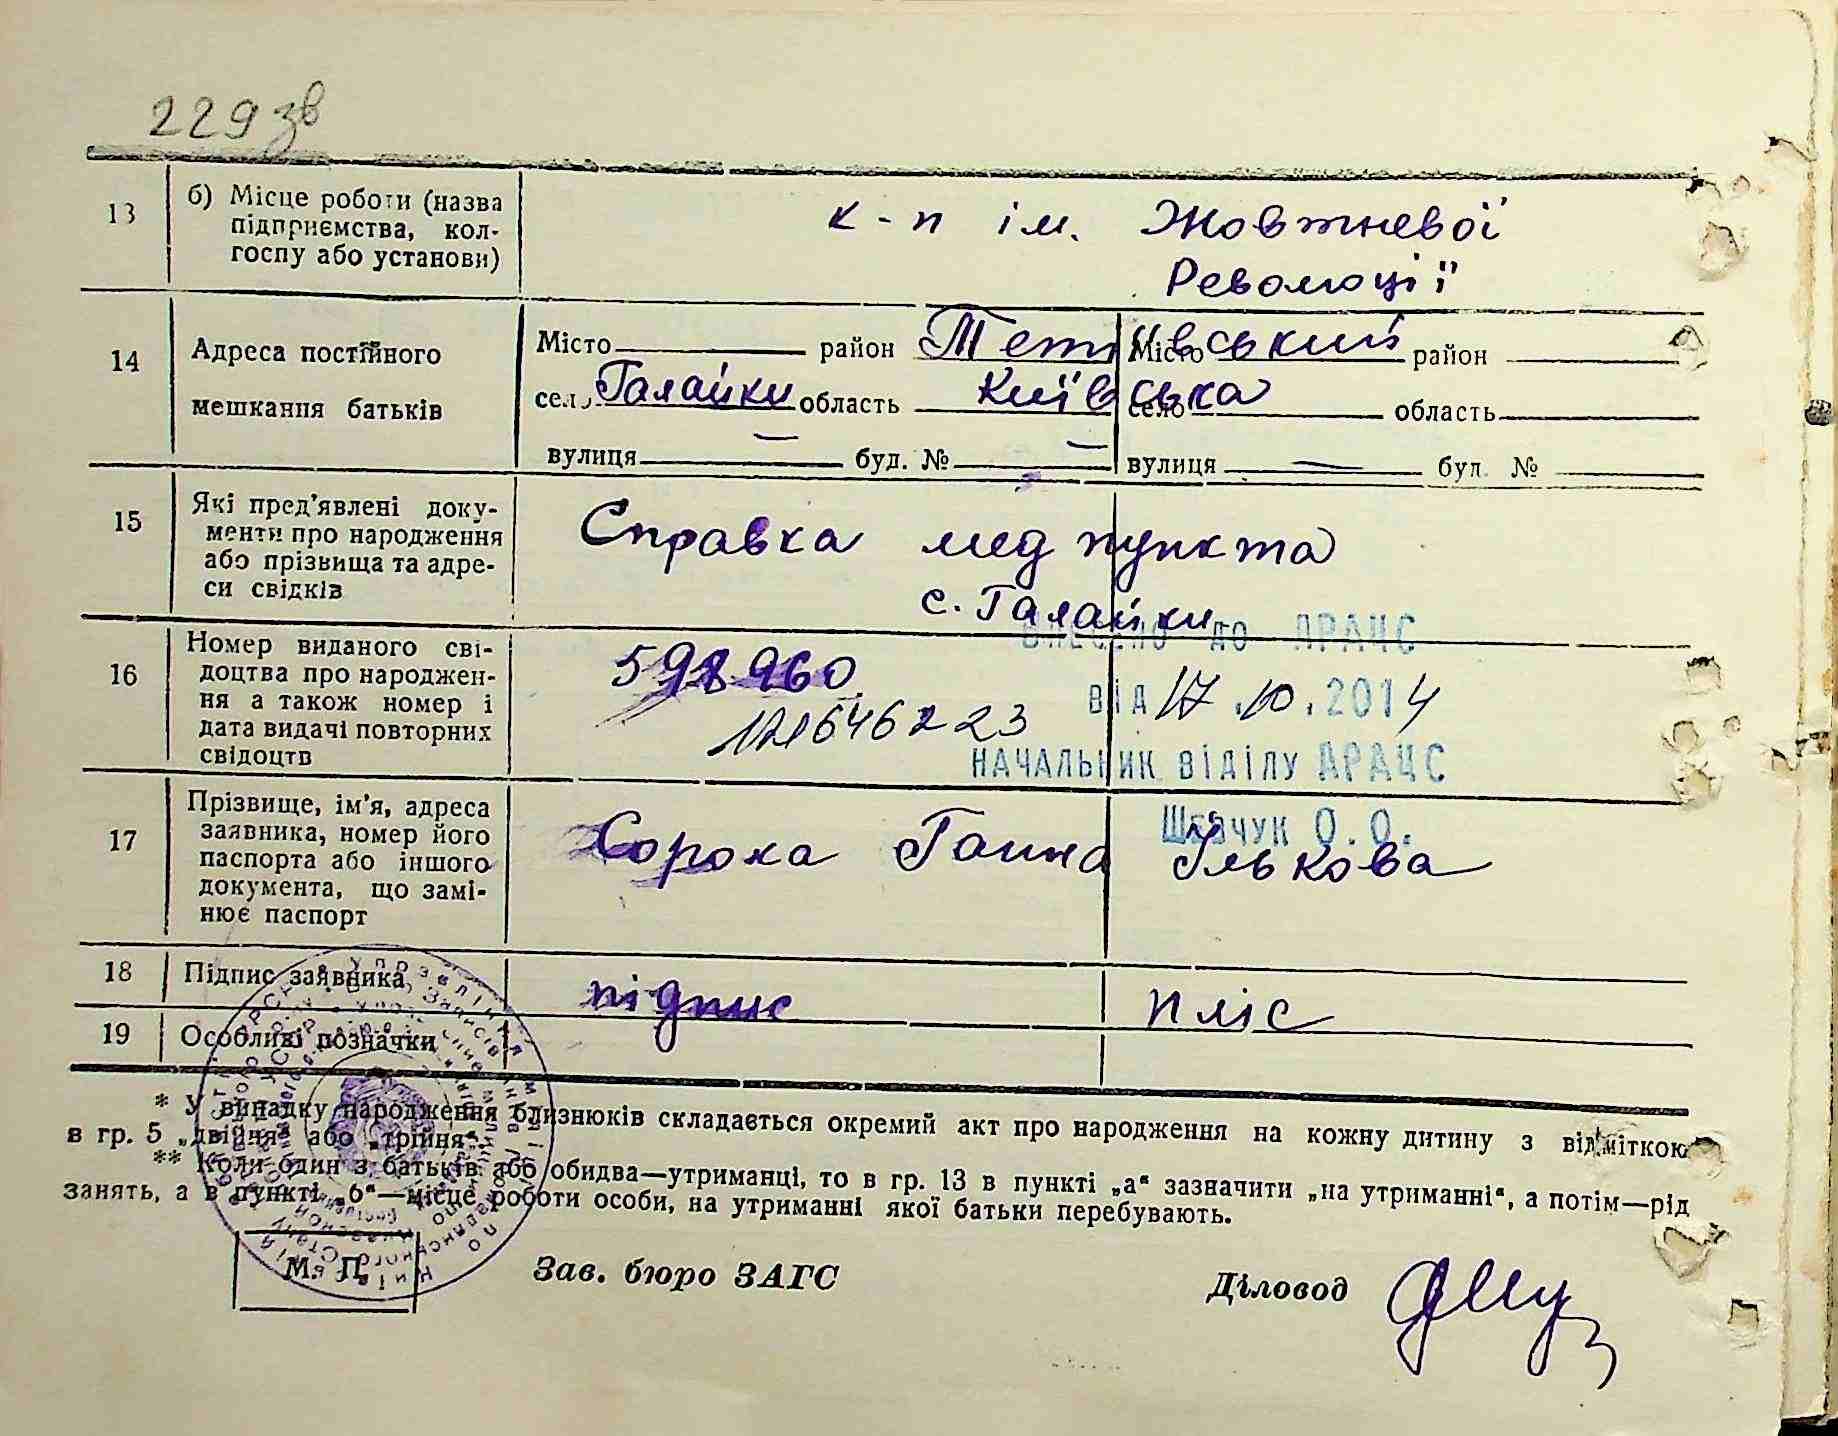 229 зв
13 б) Місце роботи (назва підприємства, кол-
госпу або установи)
к-п ім. Жовтневої
Революції
14 Адреса постійного
мешкання батьків
Місто район Тетіївський Місто район
село Галайки область Київська село область
вулиця — буд. № — вулиця — буд. №
15 Які пред'явлені доку-
менти про народження
або прізвища та адре-
си свідків
Справка медпункта
с. Галайки
16 Номер виданого сві-
доцтва про народжен-
ня а також номер і
дата видачі повторних
свідоцтв
598960
ВНЕСЕНО ДО ДРАЦС
ВІД 17.10.2014
НАЧАЛЬНИК ВІДІЛУ ДРАЦС
ШЕВЧУК О.О.
17 Прізвище, ім'я, адреса
заявника, номер його
паспорта або іншого
документа, що замі-
нює паспорт
Сорока Ганна Ількова
18 Підпис заявника
підпис
19 Особливі позначки
* У випадку народження близнюків складається окремий акт про народження на кожну дитину з відміткою
в гр. 5 „двійня“ або „трійня“.
** Коли один з батьків або обидва—утриманці, то в гр. 13 в пункті „а“ зазначити „на утриманні“, а потім—рід
занять, а в пункті „б“—місце роботи особи, на утриманні якої батьки перебувають.
М. П.
Зав. бюро ЗАГС
Діловод